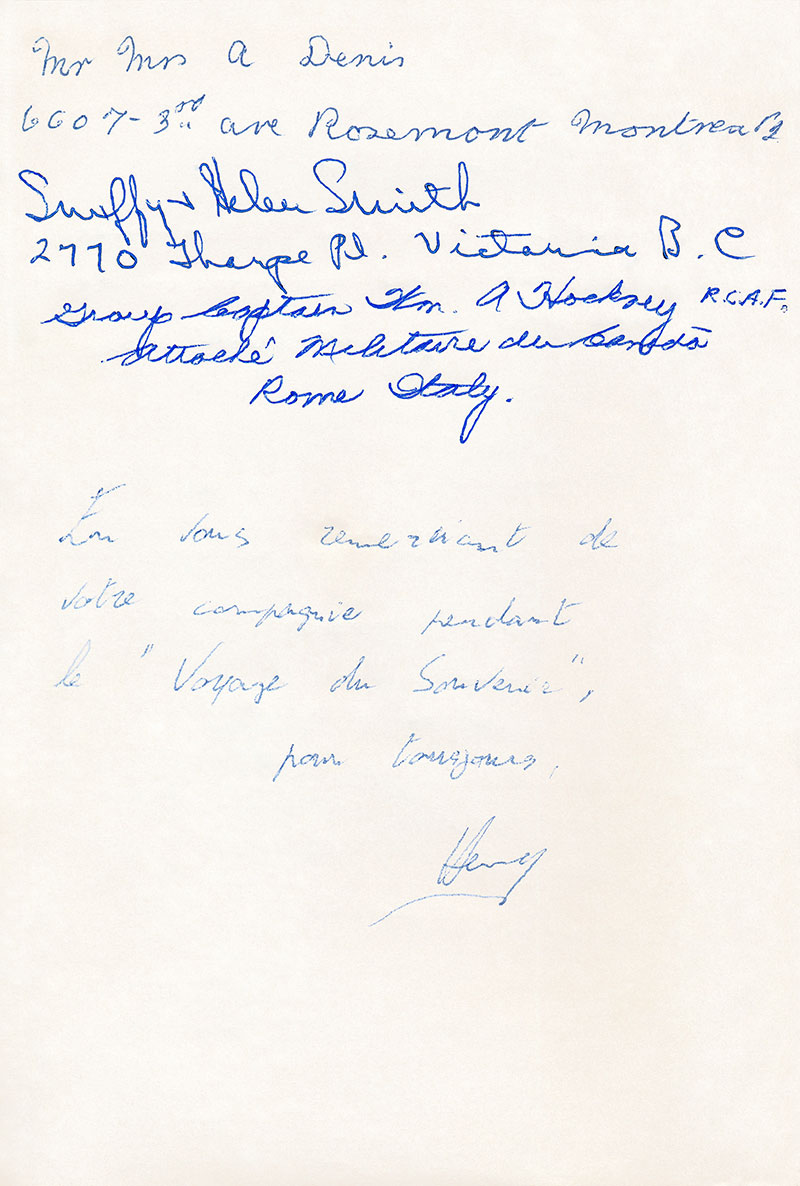 Mr Mrs A Denis
6607-3rd ave Rosemont Montreal
Smuffy & Helen Smith
2770 Tharpe Pl. Victoria B.C
Group Captain Wm. A Hockney R.C.A.F.
Attaché Militaire du Canada
Rome Italy.
En vous remerciant de
votre compagnie pendant
le "Voyage du Souvenir",
pour toujours,
Henry